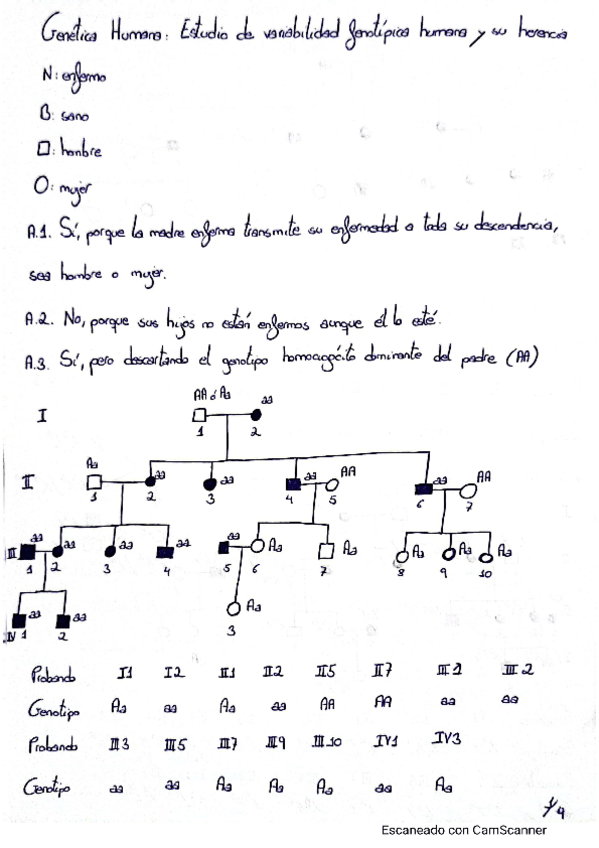 Genética Humana: Estudio de variabilidad fenotípica humana y su herencia
N: enfermo
B: sano
□: hombre
O: mujer
A.1. Sí, porque la madre enferma transmite su enfermedad a toda su descendencia,
sea hombre o mujer.
A.2. No, porque sus hijos no están enfermos aunque él lo esté.
A.3. Sí, pero descartando el genotipo homocigótico dominante del padre (AA)
AA ó Aa aa
I
1 2
Aa aa aa aa AA aa AA
II
1 2 3 4 5 6 7
aa aa aa aa aa Aa Aa Aa Aa Aa
III
1 2 3 4 5 6 7 8 9 10
aa aa Aa
IV 1 2 3
Probando I1 I2 II1 II2 II5 II7 III1 III2
Genotipo Aa aa Aa aa AA AA aa aa
Probando III3 III5 III7 III9 III10 IV1 IV3
Genotipo aa aa Aa Aa Aa aa Aa
Escaneado con CamScanner